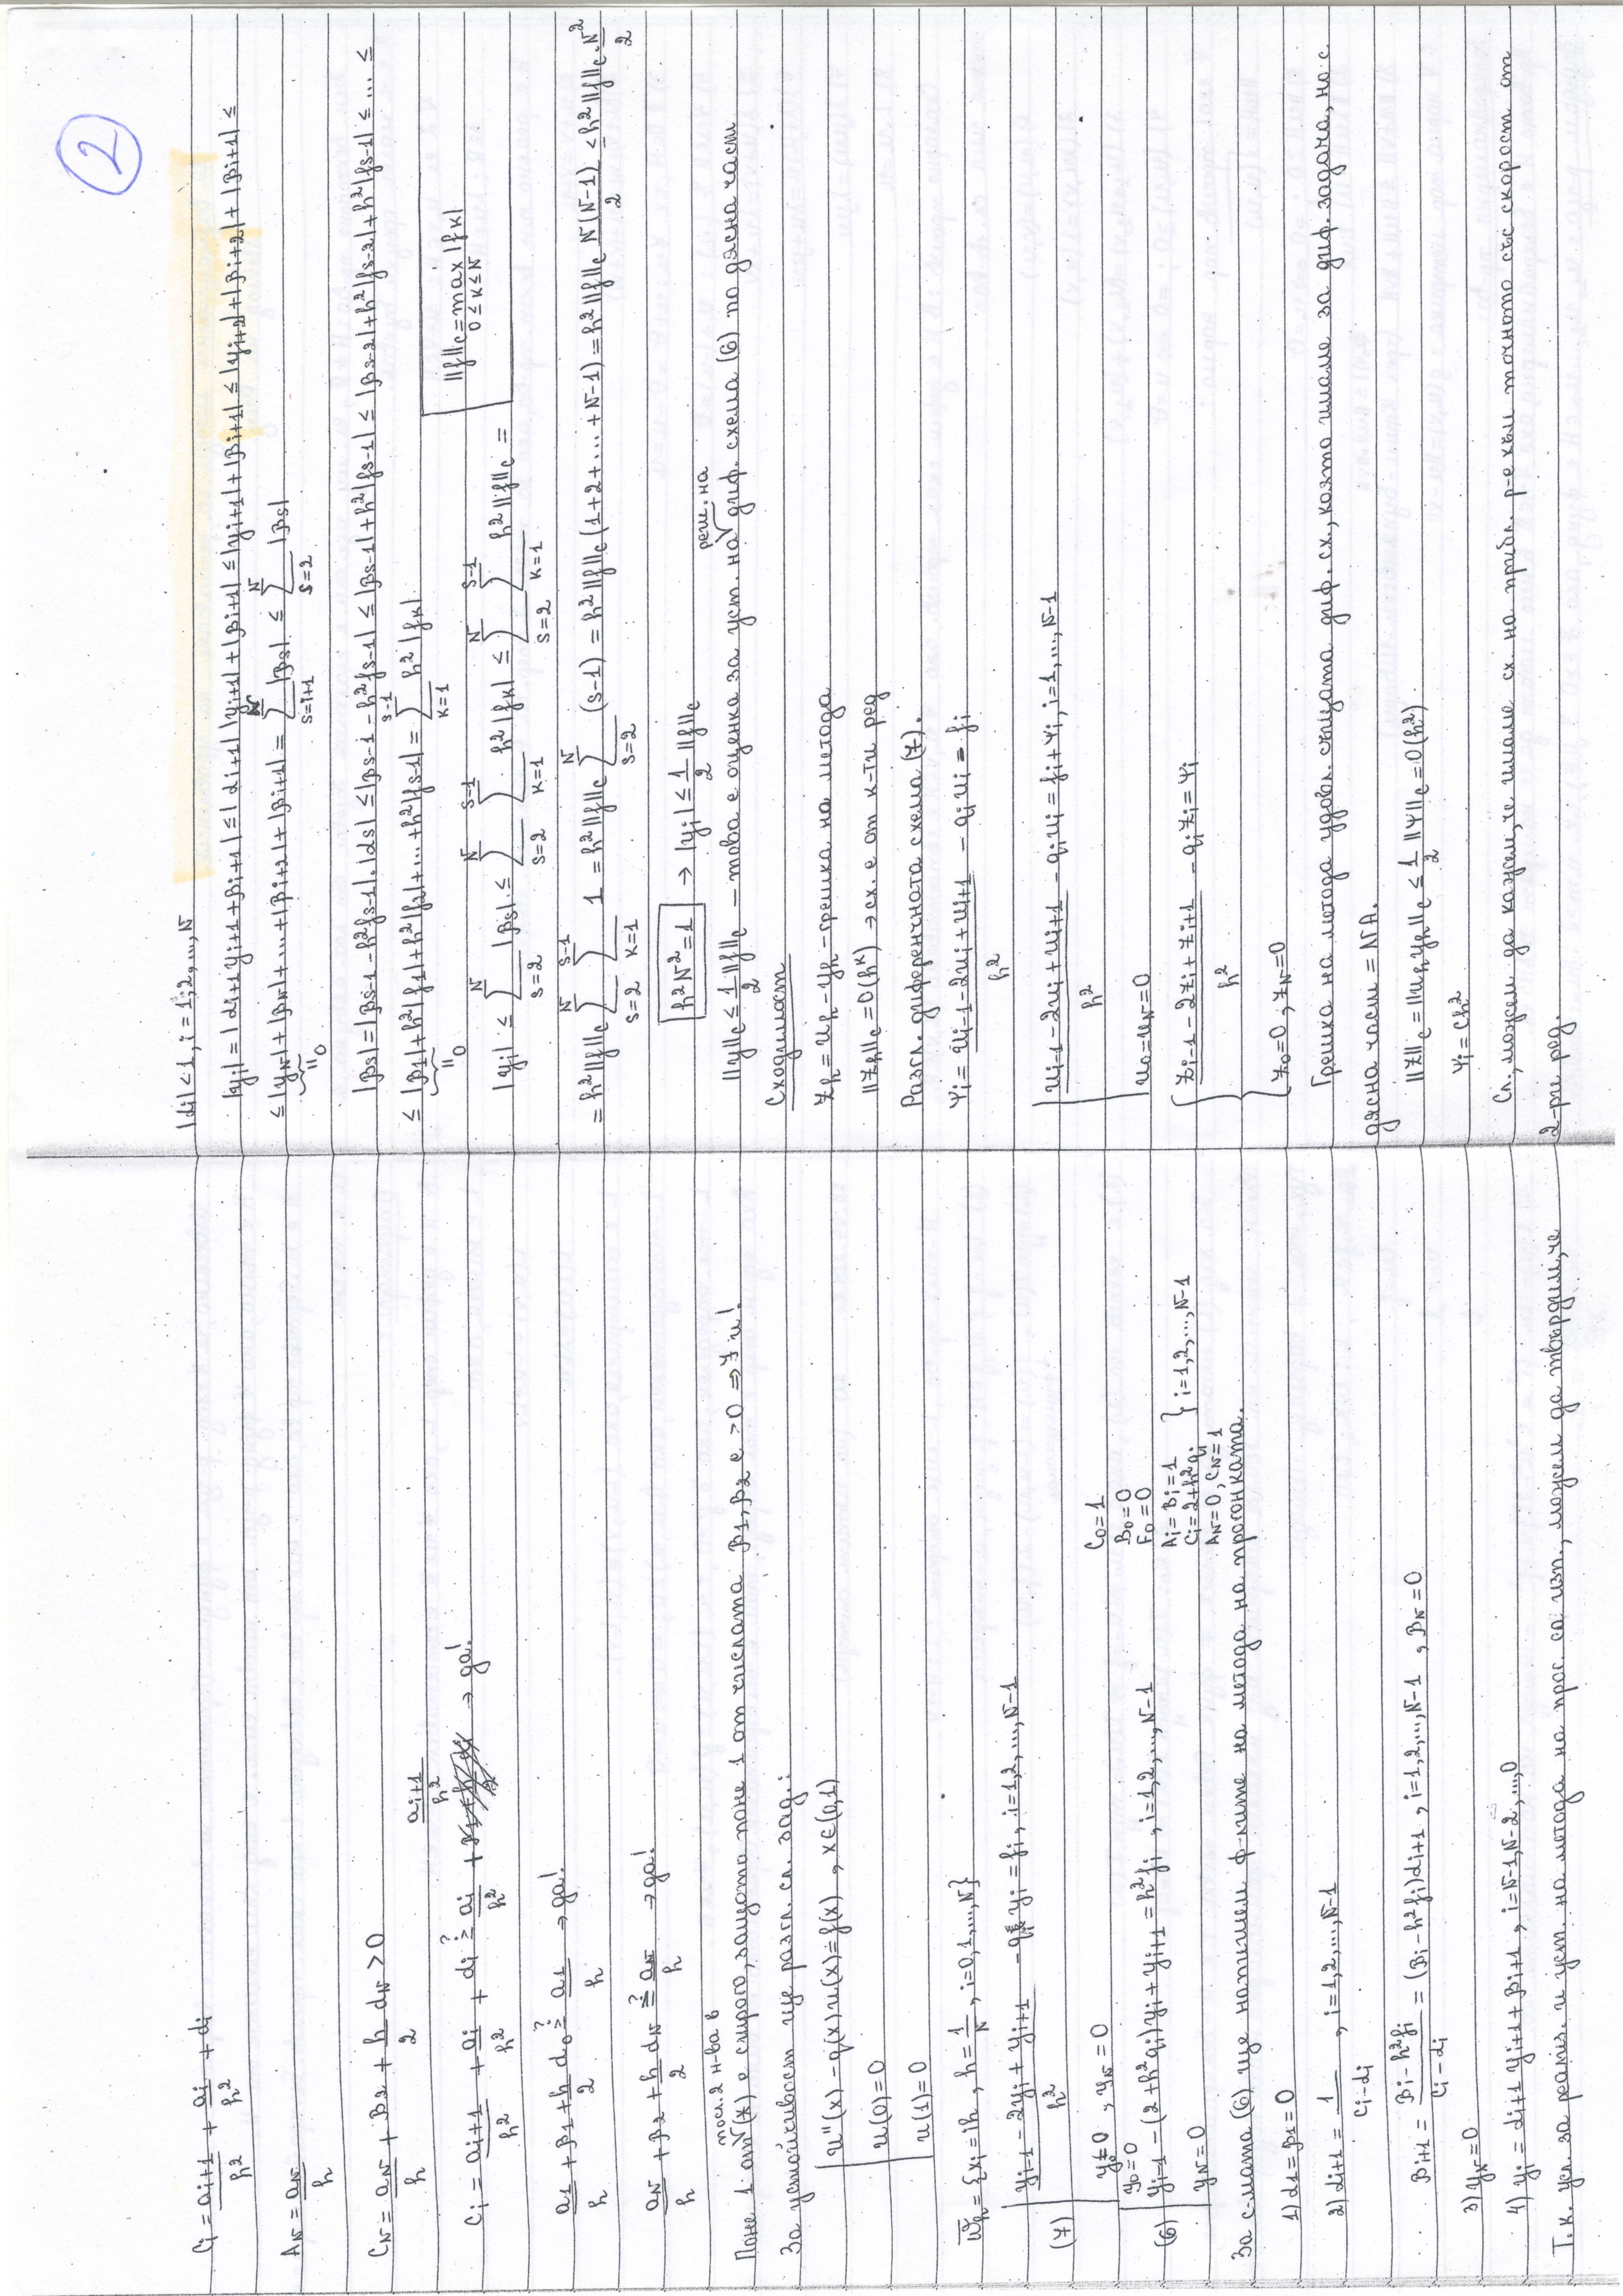 2
Ci = ai+1/h² + ai/h² + di
AN = aN/h
CN = aN/h + β2 + h/2 dN > 0
Ci = ai+1/h² + ai/h² + di ≥? ai/h² + ai+1/h² → да!
a1/h + β1 + h/2 d0 ≥? a1/h → да!
aN/h + β2 + h/2 dN ≥? aN/h → да!
посл. 2 н-ва в
Поне 1 от (*) е строго, защото поне 1 от числата β1, β2 е >0 ⇒ ∃ и!
За устойчивост ще разгл. сл. зад.:
u''(x) - q(x)u(x) = f(x), x∈(0,1)
u(0)=0
u(1)=0
ω̄h = {xi = ih, h = 1/N, i=0,1,...,N}
(7) (yi-1 - 2yi + yi+1)/h² - qi yi = fi, i=1,2,...,N-1
y0=0, yN=0
(6) y0=0
yi-1 - (2+h²qi)yi + yi+1 = h²fi, i=1,2,...,N-1
yN=0
C0=1
B0=0
F0=0
Ai=Bi=1
Ci=2+h²qi } i=1,2,...,N-1
AN=0, CN=1
За с-мата (6) ще напишем ф-лите на метода на прогонката.
1) α1=β1=0
2) αi+1 = 1/(ci-αi), i=1,2,...,N-1
βi+1 = (βi-h²fi)/(ci-αi) = (βi-h²fi)αi+1, i=1,2,...,N-1, βN=0
3) yN=0
4) yi = αi+1 yi+1 + βi+1, i=N-1,N-2,...,0
Т.к. усл. за реализ. и уст. на метода на прог. са изп., можем да твърдим, че
|αi|<1, i=1,2,...,N
|yi| = |αi+1 yi+1 + βi+1| ≤ |αi+1||yi+1| + |βi+1| ≤ |yi+1| + |βi+1| ≤ |yi+2| + |βi+2| + |βi+1| ≤
≤ |yN| + |βN| + ... + |βi+2| + |βi+1| = ∑ s=i+1 N |βs| ≤ ∑ s=2 N |βs|
=0
|βs| = |βs-1 - h²fs-1|.|αs| ≤ |βs-1 - h²fs-1| ≤ |βs-1| + h²|fs-1| ≤ |βs-2| + h²|fs-2| + h²|fs-1| ≤ ... ≤
≤ |β1| + h²|f1| + h²|f2| + ... + h²|fs-1| = ∑ k=1 s-1 h²|fk|
=0
||f||c = max 0≤k≤N |fk|
|yi| ≤ ∑ s=2 N |βs| ≤ ∑ s=2 N ∑ k=1 s-1 h²|fk| ≤ ∑ s=2 N ∑ k=1 s-1 h²||f||c =
= h²||f||c ∑ s=2 N ∑ k=1 s-1 1 = h²||f||c ∑ s=2 N (s-1) = h²||f||c(1+2+...+N-1) = h²||f||c N(N-1)/2 ≤ h²||f||c.N²/2
h²N²=1 → |yi| ≤ 1/2 ||f||c
реш. на
||y||c ≤ 1/2 ||f||c - това е оценка за уст. на диф. схема (6) по дясна част
Сходимост
zh = uh - yh - грешка на метода
||zh||c = O(h^k) → сх. е от k-ти ред
Разгл. диференчната схема (7).
ψi = (ui-1 - 2ui + ui+1)/h² - qi ui - fi
(ui-1 - 2ui + ui+1)/h² - qi ui = fi + ψi, i=1,...,N-1
u0=uN=0
(zi-1 - 2zi + zi+1)/h² - qi zi = ψi
z0=0, zN=0
Грешка на метода удовл. същата диф. сх., която имаме за диф. задача, но с
дясна част = ЛГА.
||z||c = ||uh-yh||c ≤ 1/2 ||ψ||c = O(h²)
ψi = ch²
Сл., можем да кажем, че имаме сх. на прибл. р-е към точното със скорост от
2-ри ред.